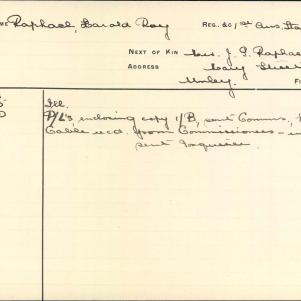 ME Raphael, Harold Roy REG. &C 1st Aus. Sta
NEXT OF KIN Mrs. J. G. Raphae
ADDRESS Cary Stree
Unley. F
Ill.
P/L's, enclosing copy 1/B, sent Comms,
Cable recd. from Commissioners
sent Inquirer